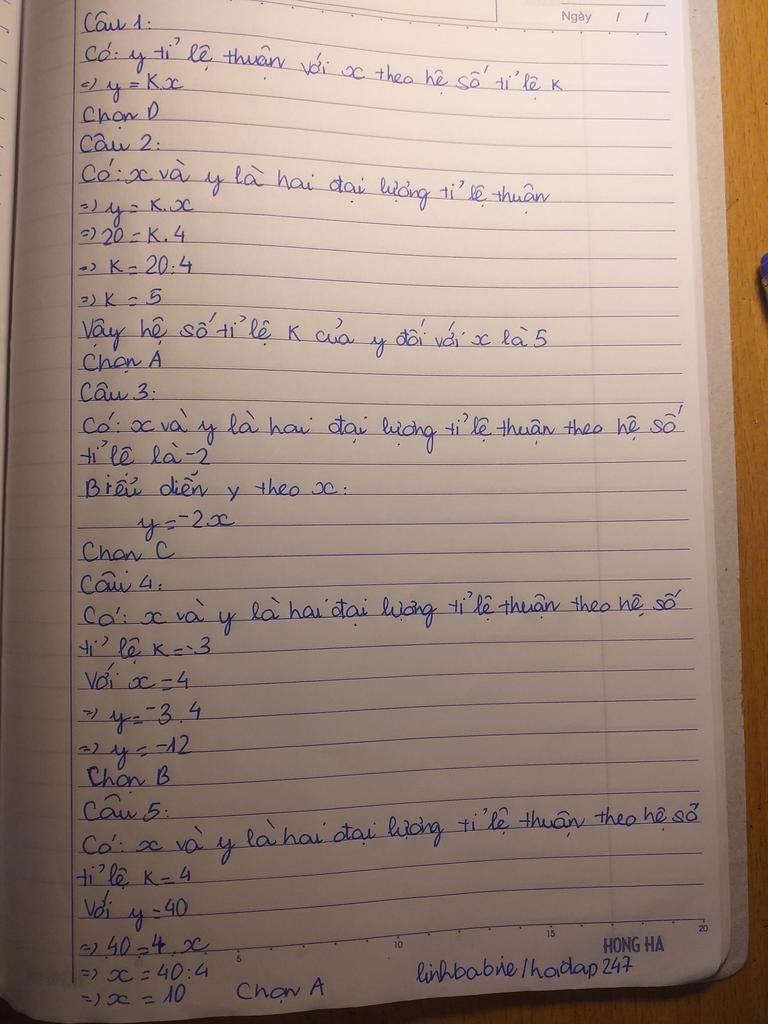 Ngày / /
Câu 1:
Có: y tỉ lệ thuận với x theo hệ số tỉ lệ K
=> y = K.x
Chọn D
Câu 2:
Có: x và y là hai đại lượng tỉ lệ thuận
=> y = K.x
=> 20 = K.4
=> K = 20:4
=> K = 5
Vậy hệ số tỉ lệ K của y đối với x là 5
Chọn A
Câu 3:
Có: x và y là hai đại lượng tỉ lệ thuận theo hệ số
tỉ lệ là -2
Biểu diễn y theo x:
y = -2x
Chọn C
Câu 4:
Có: x và y là hai đại lượng tỉ lệ thuận theo hệ số
tỉ lệ K = -3
Với x = 4
=> y = -3.4
=> y = -12
Chọn B
Câu 5:
Có: x và y là hai đại lượng tỉ lệ thuận theo hệ số
tỉ lệ K = 4
Với y = 40
=> 40 = 4.x
=> x = 40:4
=> x = 10 Chọn A
5 10 15 20
HONG HA
linhbabie/hoidap247